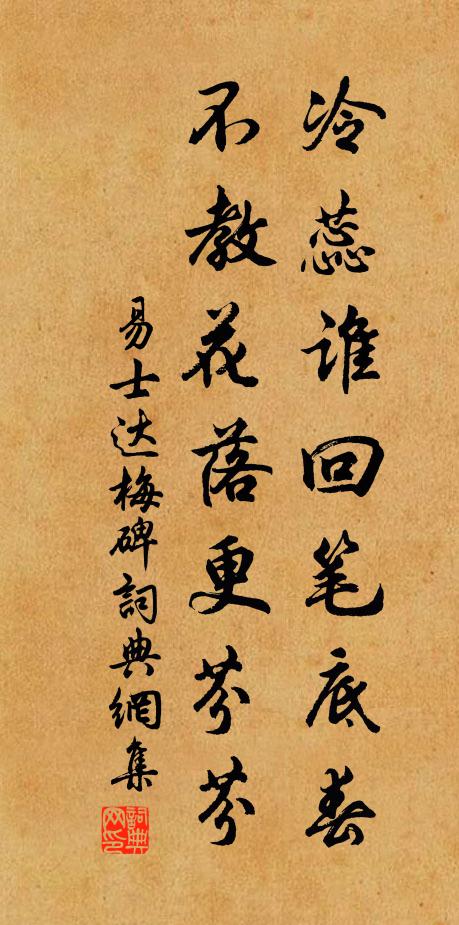 冷蕊谁回笔底春
不教花落更芬芬
易士达梅碑詞典網集
詞典網印